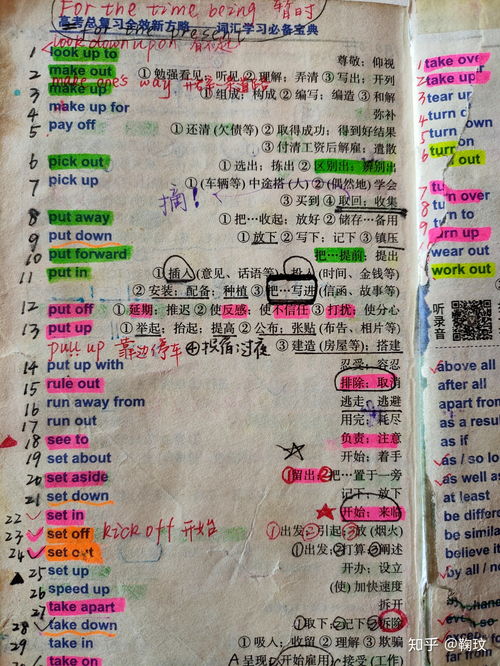 For the time being 暂时
高考总复习全效新方略 词汇学习必备宝典
look down upon 看不起
1 look up to 尊敬；仰视
2 make out ①勉强看见；听见②理解；弄清③写出；开列
make one's way
3 make up ①组成；构成②编写；编造③和解
4 make up for 弥补
5 pay off ①还清(欠债等)②取得成功；得到好结果
③付清工资后解雇；遣散
6 pick out ①选出；拣出②区别出；辨别出
7 pick up ①(车辆等)中途搭(人)②(偶然地)学会
摘！ ③买到④取回；收集
8 put away ①把…收起；放好②储存…备用
9 put down ①放下②写下；记下③镇压
10 put forward 把…提前；提出
11 put in ①插入(意见、话语等)②投入(时间、金钱等)
②安装；配备；种植③把…写进(信函、故事等)
12 put off ①延期；推迟②使反感；使不信任③打扰；使分心
13 put up ①举起；抬起；提高②公布；张贴(布告、相片等)
pull up 靠边停车 ④投宿；过夜 ③建造(房屋等)；搭建
14 put up with 忍受；容忍
15 rule out 排除；取消
16 run away from 逃走；逃避
17 run out 用完；耗尽
18 see to 负责；注意
19 set about 开始；着手
20 set aside ①留出；②把…置于一旁
21 set down 记下；放下
22 set in 开始；来临
23 set off kick off 开始 ①出发；②引起；③放(烟火)
24 set out ①出发；②打算③阐述
25 set up 开办；设立
26 speed up (使)加快速度
27 take apart 拆开
28 take down ①取下；②记下③拆除
29 take in ①吸入；收留②理解③欺骗
take on 呈现 开始雇用 接受(工作)
1 take over
2 take up
3 tear up
4 turn
5 turn
6 turn out
7 turn over
8 turn to
9 turn up
wear out
work out
听录音
above all
after all
apart from
as a result
as if
as / so lo
as well as
at least
be differ
be similar
believe
by all / no